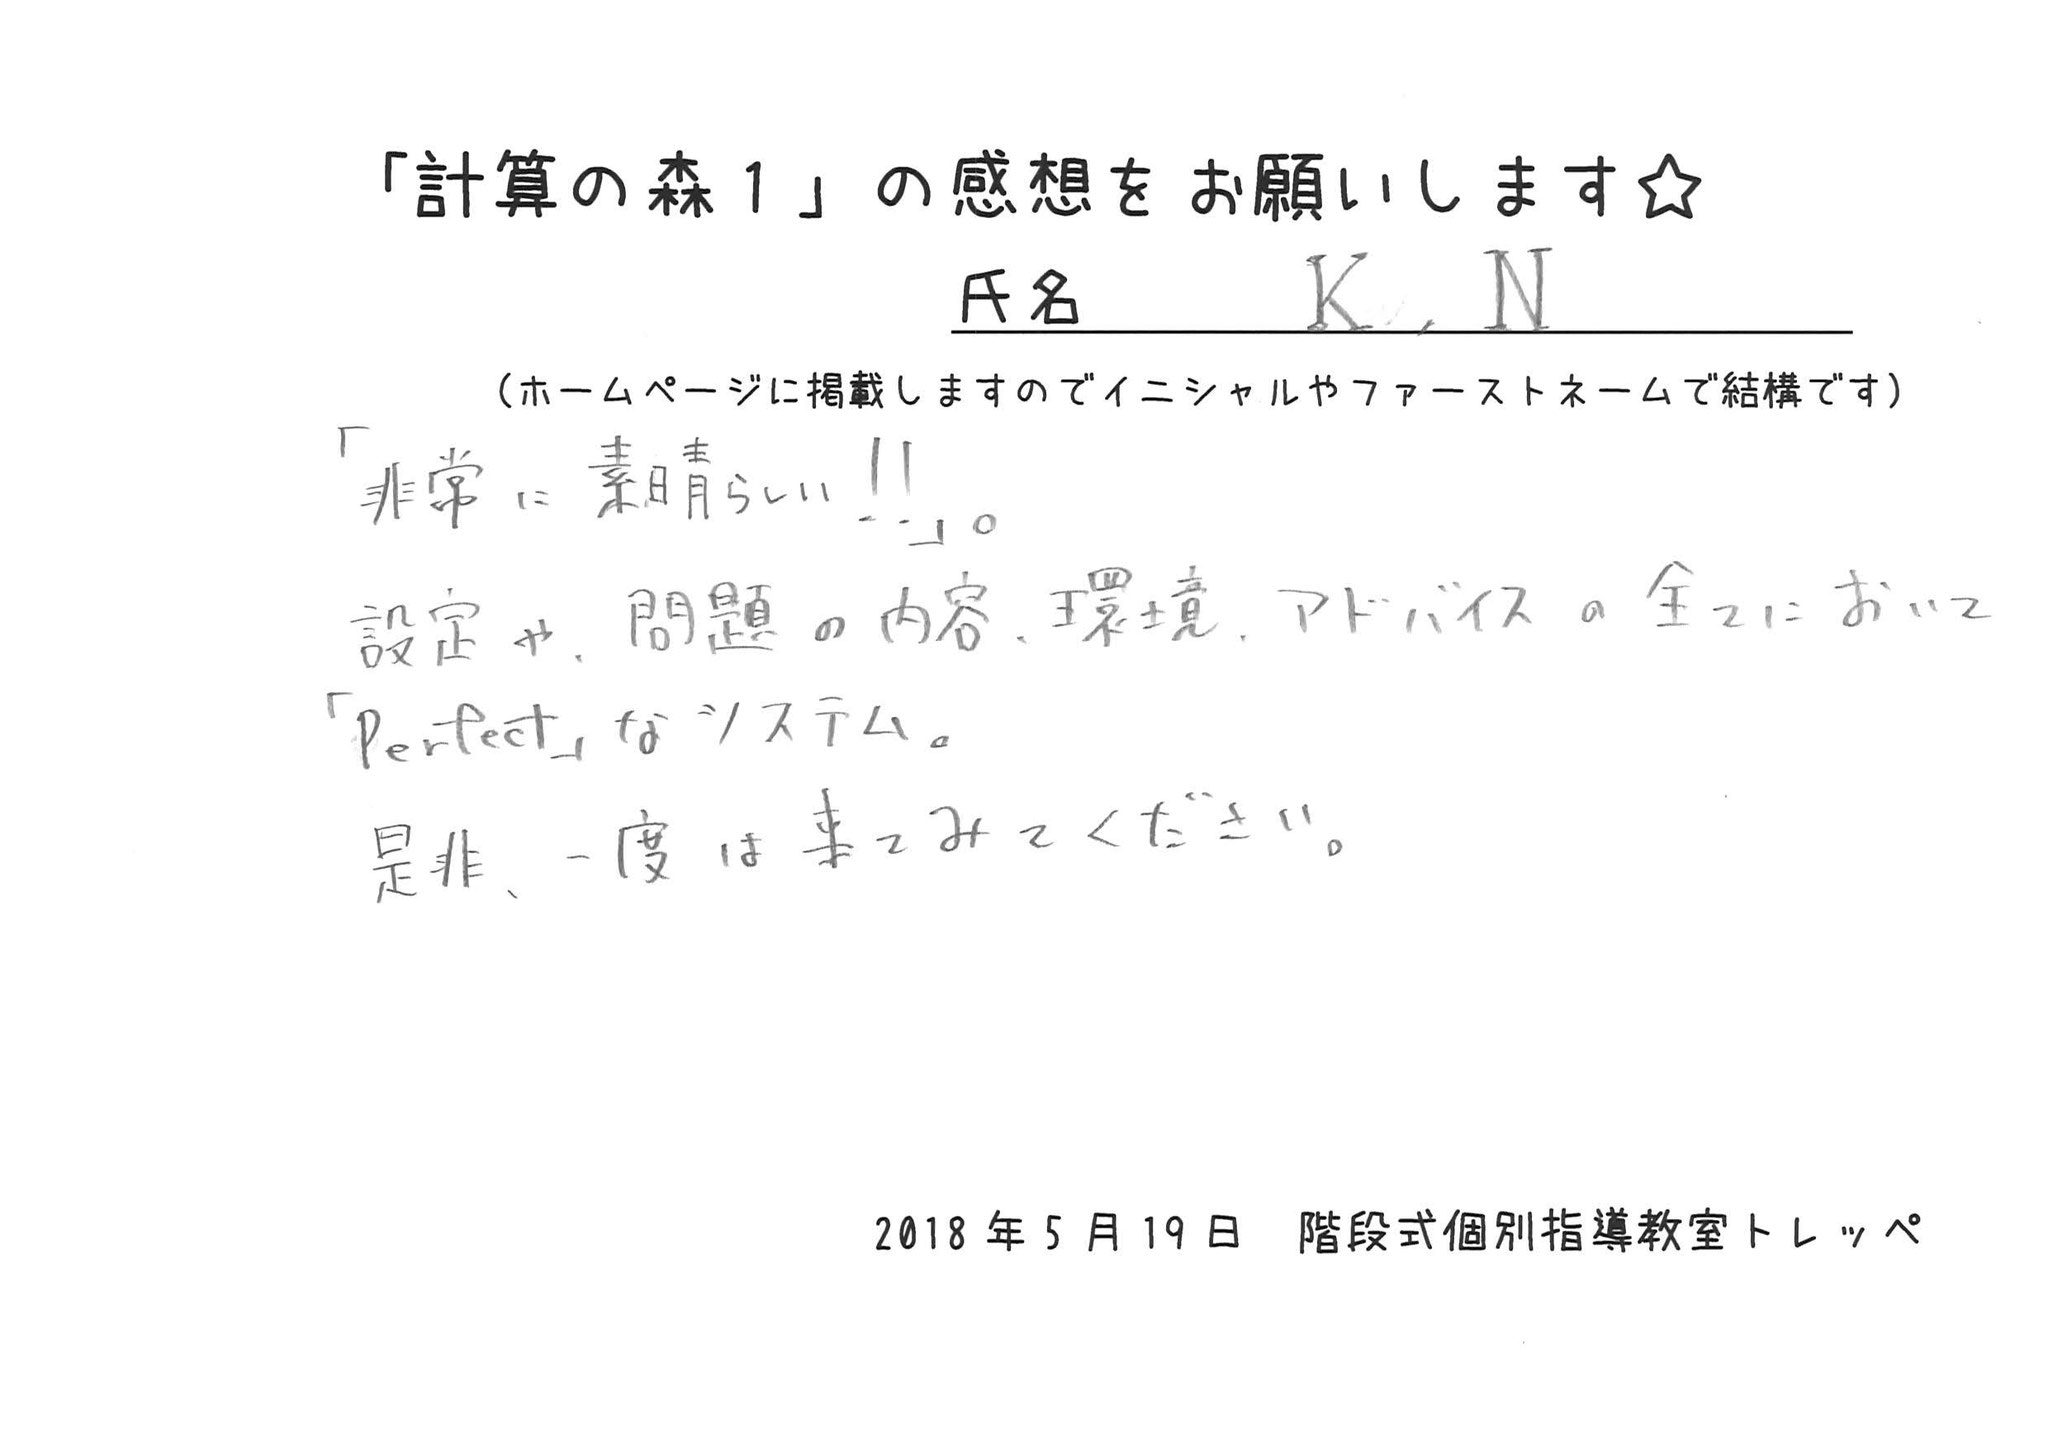 「計算の森1」の感想をお願いします☆
氏名 K, N
(ホームページに掲載しますのでイニシャルやファーストネームで結構です)
「非常に素晴らしい!!」。
設定や、問題の内容、環境、アドバイスの全てにおいて
「Perfect」なシステム。
是非、一度は来てみてください。
2018年5月19日 階段式個別指導教室トレッペ